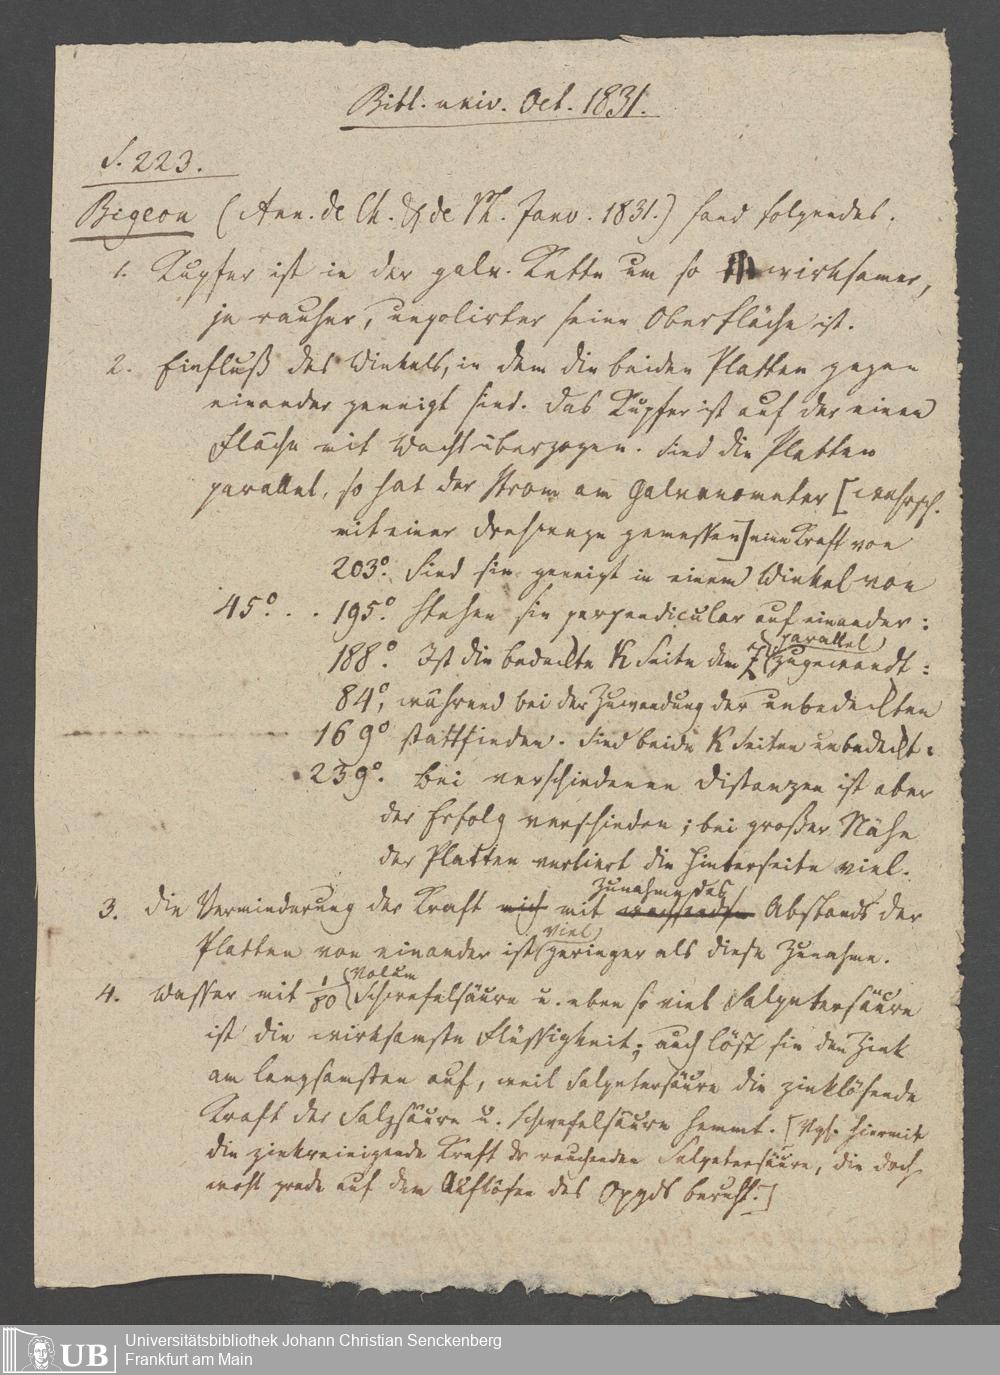 Bibl. univ. Oct. 1831.
S. 223.
Bigeon (Ann. de Ch. & de Ph. Janv. 1831.) fand folgendes.
1. Kupfer ist in der galv. Kette um so wirksamer,
je rauher, unpolirter seine Oberfläche ist.
2. Einfluß des Winkels, in dem die beiden Platten gegen
einander geneigt sind. Das Kupfer ist auf der einen
Fläche mit Wachs überzogen. Sind die Platten
parallel, so hat der Strom am Galvanometer [wahrsch.
mit einer Drehwage gemessen] eine Kraft von
203°. Sind sie geneigt in einem Winkel von
45° . . 195° Stehen sie perpendicular auf einander:
188°. Ist die bedeckte K Seite dem Z (parallel) zugewandt:
84°, während bei der Zuwendung der unbedeckten
169° stattfinden. Sind beide K Seiten unbedeckt:
239°. Bei verschiedenen Distanzen ist aber
der Erfolg verschieden; bei großer Nähe
der Platten verliert die Hinterseite viel.
3. Die Verminderung der Kraft mit Zunahme des Abstands der
Platten von einander ist viel geringer als diese Zunahme.
4. Wasser mit 1/50 Volum Schwefelsäure u. eben so viel Salpetersäure
ist die wirksamste Flüssigkeit; auch löst sie den Zink
am langsamsten auf, weil Salpetersäure die zinklösende
Kraft der Salzsäure u. Schwefelsäure hemmt. [Vgl. hiermit
die zinkreinigende Kraft der rauchenden Salpetersäure, die doch
wohl grade auf dem Auflösen des Oxyds beruht.]
Universitätsbibliothek Johann Christian Senckenberg
Frankfurt am Main
UB